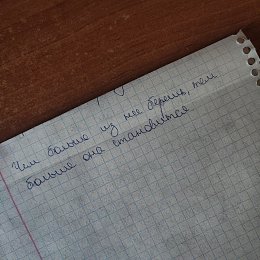 Чем больше из нее берешь, тем
больше она становится